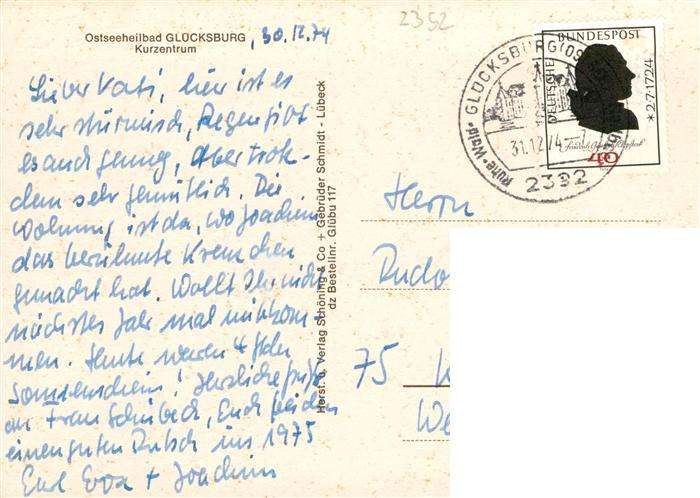 Ostseeheilbad GLÜCKSBURG
Kurzentrum
, 30.12.74
Lieber Vati, hier ist es
sehr stürmisch, Regen gibt
es auch genug, Aber trotz-
dem sehr gemütlich. Die
Wohnung ist da, wo Joachim
das berühmte Kremchen
gemacht hat. Wollt Ihr nicht
nächstes Jahr mal mitkom-
men. Heute waren 4 Std.
Sonnenschein! Herzliche Grüße
an Frau Schübeck, Euch beiden
einen guten Rutsch ins 1975
Eure Eva + Joachim
Herst. u. Verlag Schöning & Co + Gebrüder Schmidt - Lübeck
dz Bestellnr. Glübu 117
2392
GLÜCKSBURG (OS
Ruhe · Wald ·
31.12.74
2392
DEUTSCHE BUNDESPOST
* 2.7.1724
Friedrich Gottlieb Klopstock
Herrn
Rudo
75 K
We